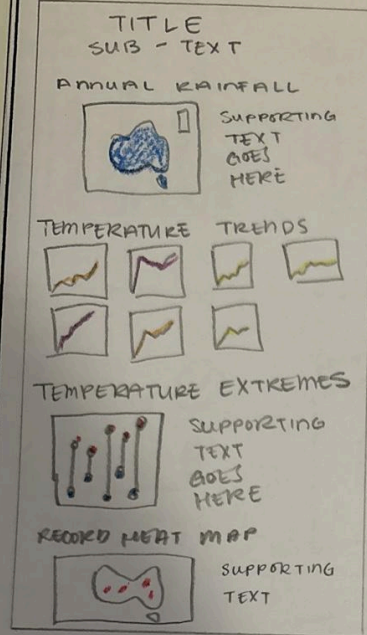 TITLE
SUB - TEXT
ANNUAL RAINFALL
SUPPORTING
TEXT
GOES
HERE
TEMPERATURE TRENDS
TEMPERATURE EXTREMES
SUPPORTING
TEXT
GOES
HERE
RECORD HEAT MAP
SUPPORTING
TEXT